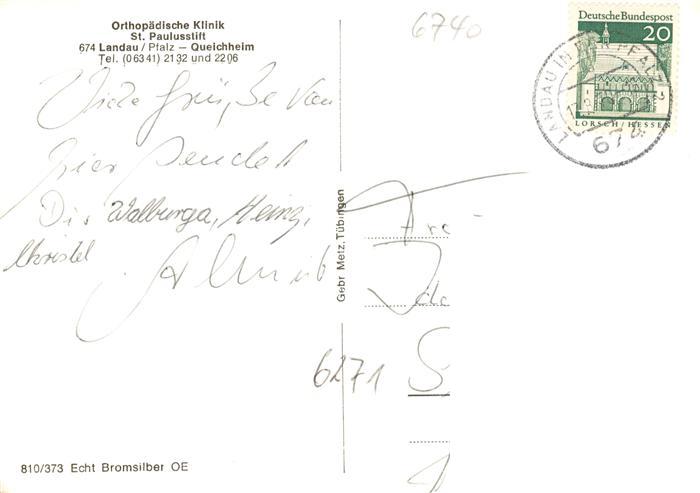 Orthopädische Klinik
St. Paulusstift
674 Landau / Pfalz – Queichheim
Tel. (0 63 41) 21 32 und 22 06
Viele Grüße von
hier sendet
Walburga, Heinz,
Christel
Gebr Metz, Tübingen
810/373 Echt Bromsilber OE
6740
Deutsche Bundespost
20
LORSCH / HESSEN
LANDAU IN DER PFALZ 2
674
6271